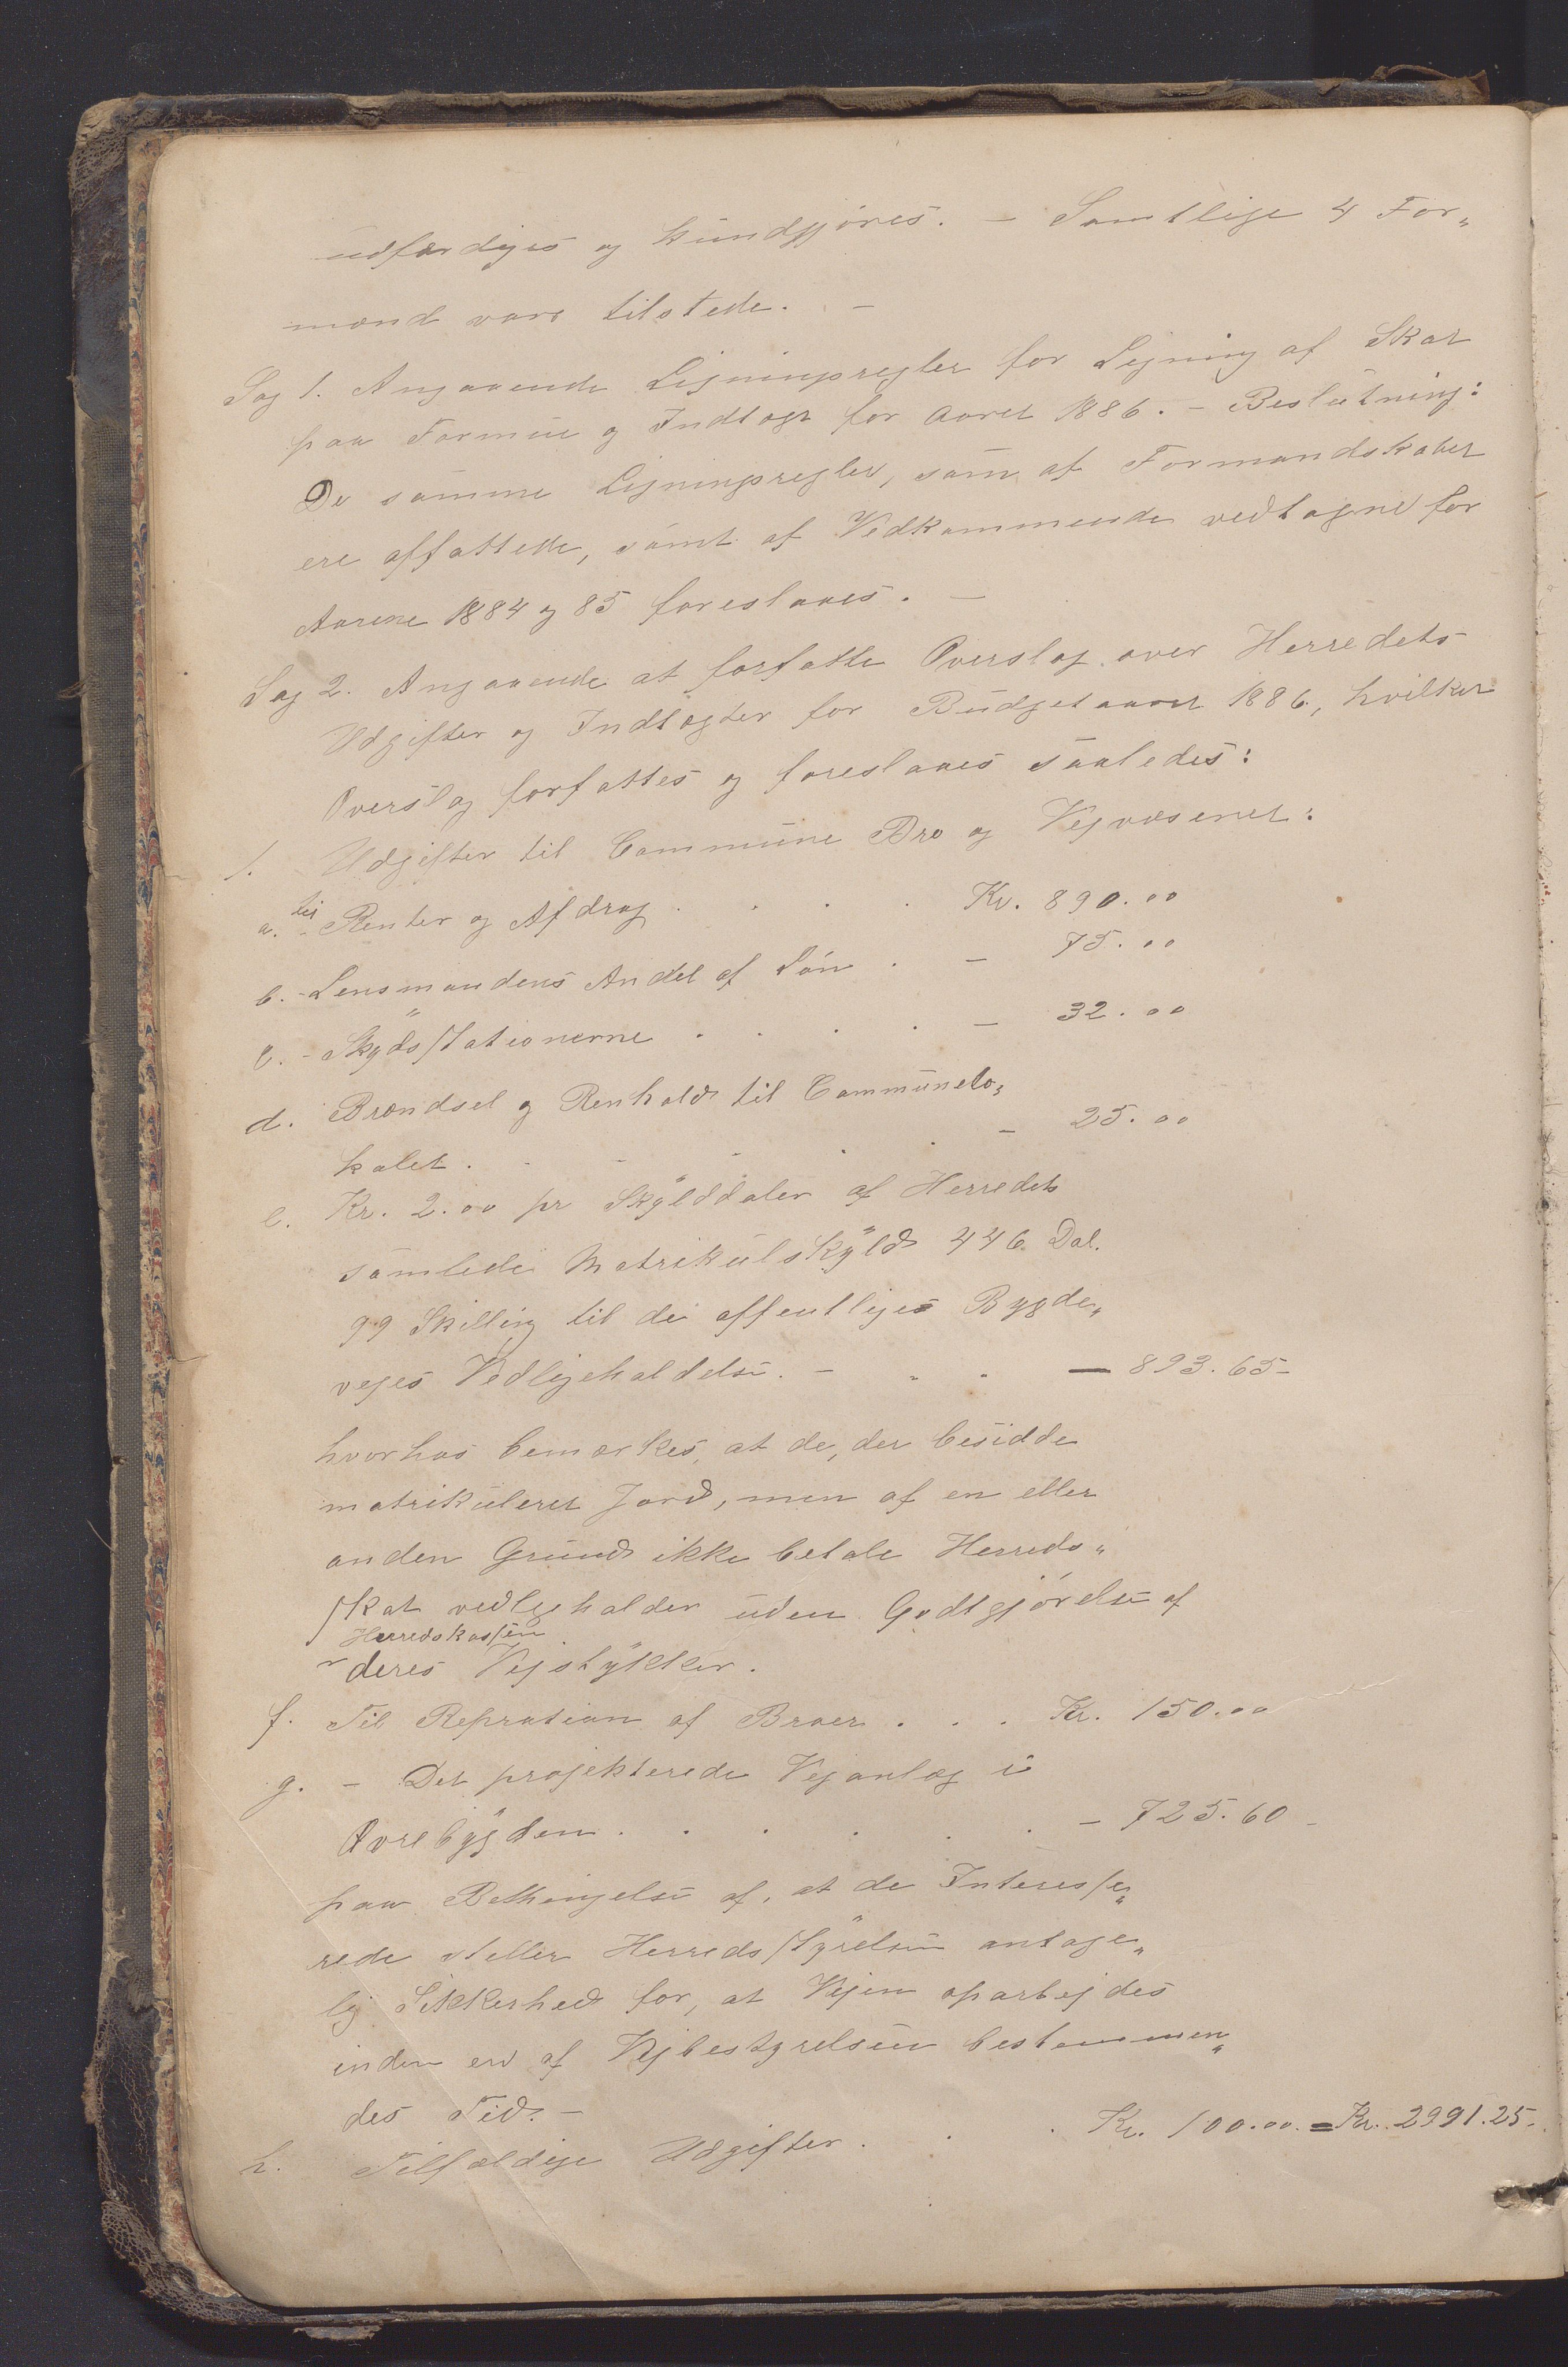 udfærdiges og kundgjøres. – Samtlige 4 For„
mænd vare tilstede. –
Sag 1. Angaaende Ligningsregler for Ligning af Skat
paa Formue og Indtægt for Aaret 1886. – Beslutning:
De samme Ligningsregler, som af Formandskabet
ere affattede, samt af Vedkommende vedtagne for
Aarene 1884 og 85 foreslaaes. –
Sag 2. Angaaende at forfatte Overslag over Herredets
Udgifter og Indtægter for Budgetaaret 1886, hvilket
Overslag forfattes og foreslaaes saaledes:
1. Udgifter til Commune Bro og Vejvæsenet:
a. til Renter og Afdrag . . . Kr. 890.00
b. – Lensmandens Andel af Løn . – 75.00
c. – Skydsstationerne . . . . – 32.00
d. Brændsel og Renhold til Communelo„
kalet. . . . . . – 25.00
e. Kr. 2.00 pr Skylddaler af Herredets
samlede Matrikulskyld 446 Dal.
99 Skilling til de offentliges Bygde„
vejes Vedligeholdelse. – . . – 893.65 –
hvorhos bemærkes, at de, der besidde
matrikuleret Jord, men af en eller
anden Grund ikke betale Herreds„
skat vedligeholder uden Godtgjørelse af
Herredskassen
deres Vejstykker.
f. Til Repration af Broer . . . Kr. 150.00
g. – Det projekterede Vejanlæg i
Øvrebygden . . . . . . – 725.60 –
paa Bethingelse af, at de Interesse„
rede steller Herredsstyrelsen antage„
lig Sikkerhed for, at Vejen oparbejdes
inden en af Vejbestyrelsen bestemmen„
des Tid. –
h. Tilfældige Udgifter . . . Kr. 100.00. = Kr. 2991.25.